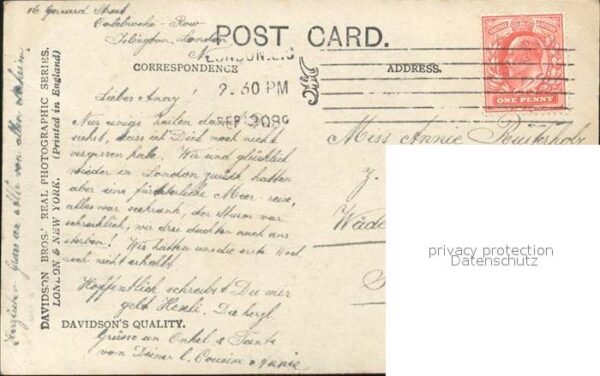 16 Gerrard Street
Colebrooke - Row
Islington, London
N
POST CARD.
LONDON. E.C
2.30 PM
SEP 20 09
CORRESPONDENCE
ADDRESS.
ONE PENNY
DAVIDSON BROS.' REAL PHOTOGRAPHIC SERIES.
LONDON & NEW YORK. (Printed in England)
Lieber Anny!
Nur einige Zeilen damit Du
siehst, dass ich Dich noch nicht
vergessen habe. Wir sind glücklich
wieder in London zurück hatten
aber eine fürchterliche Meer-reise,
alles war seekrank, der Sturm war
schrecklich, wir drei dachten auch ans
sterben! Wir hatten uns die erste
noch nicht erholt
Hoffentlich schreibst Du mir
Die herzl.
Grüsse an Onkel & Tante
von Deiner l. Cousine Annie
DAVIDSON'S QUALITY.
Herzlichen Gruss an alle von allen daheim
Miss Annie
Wäde
privacy protection
Datenschutz